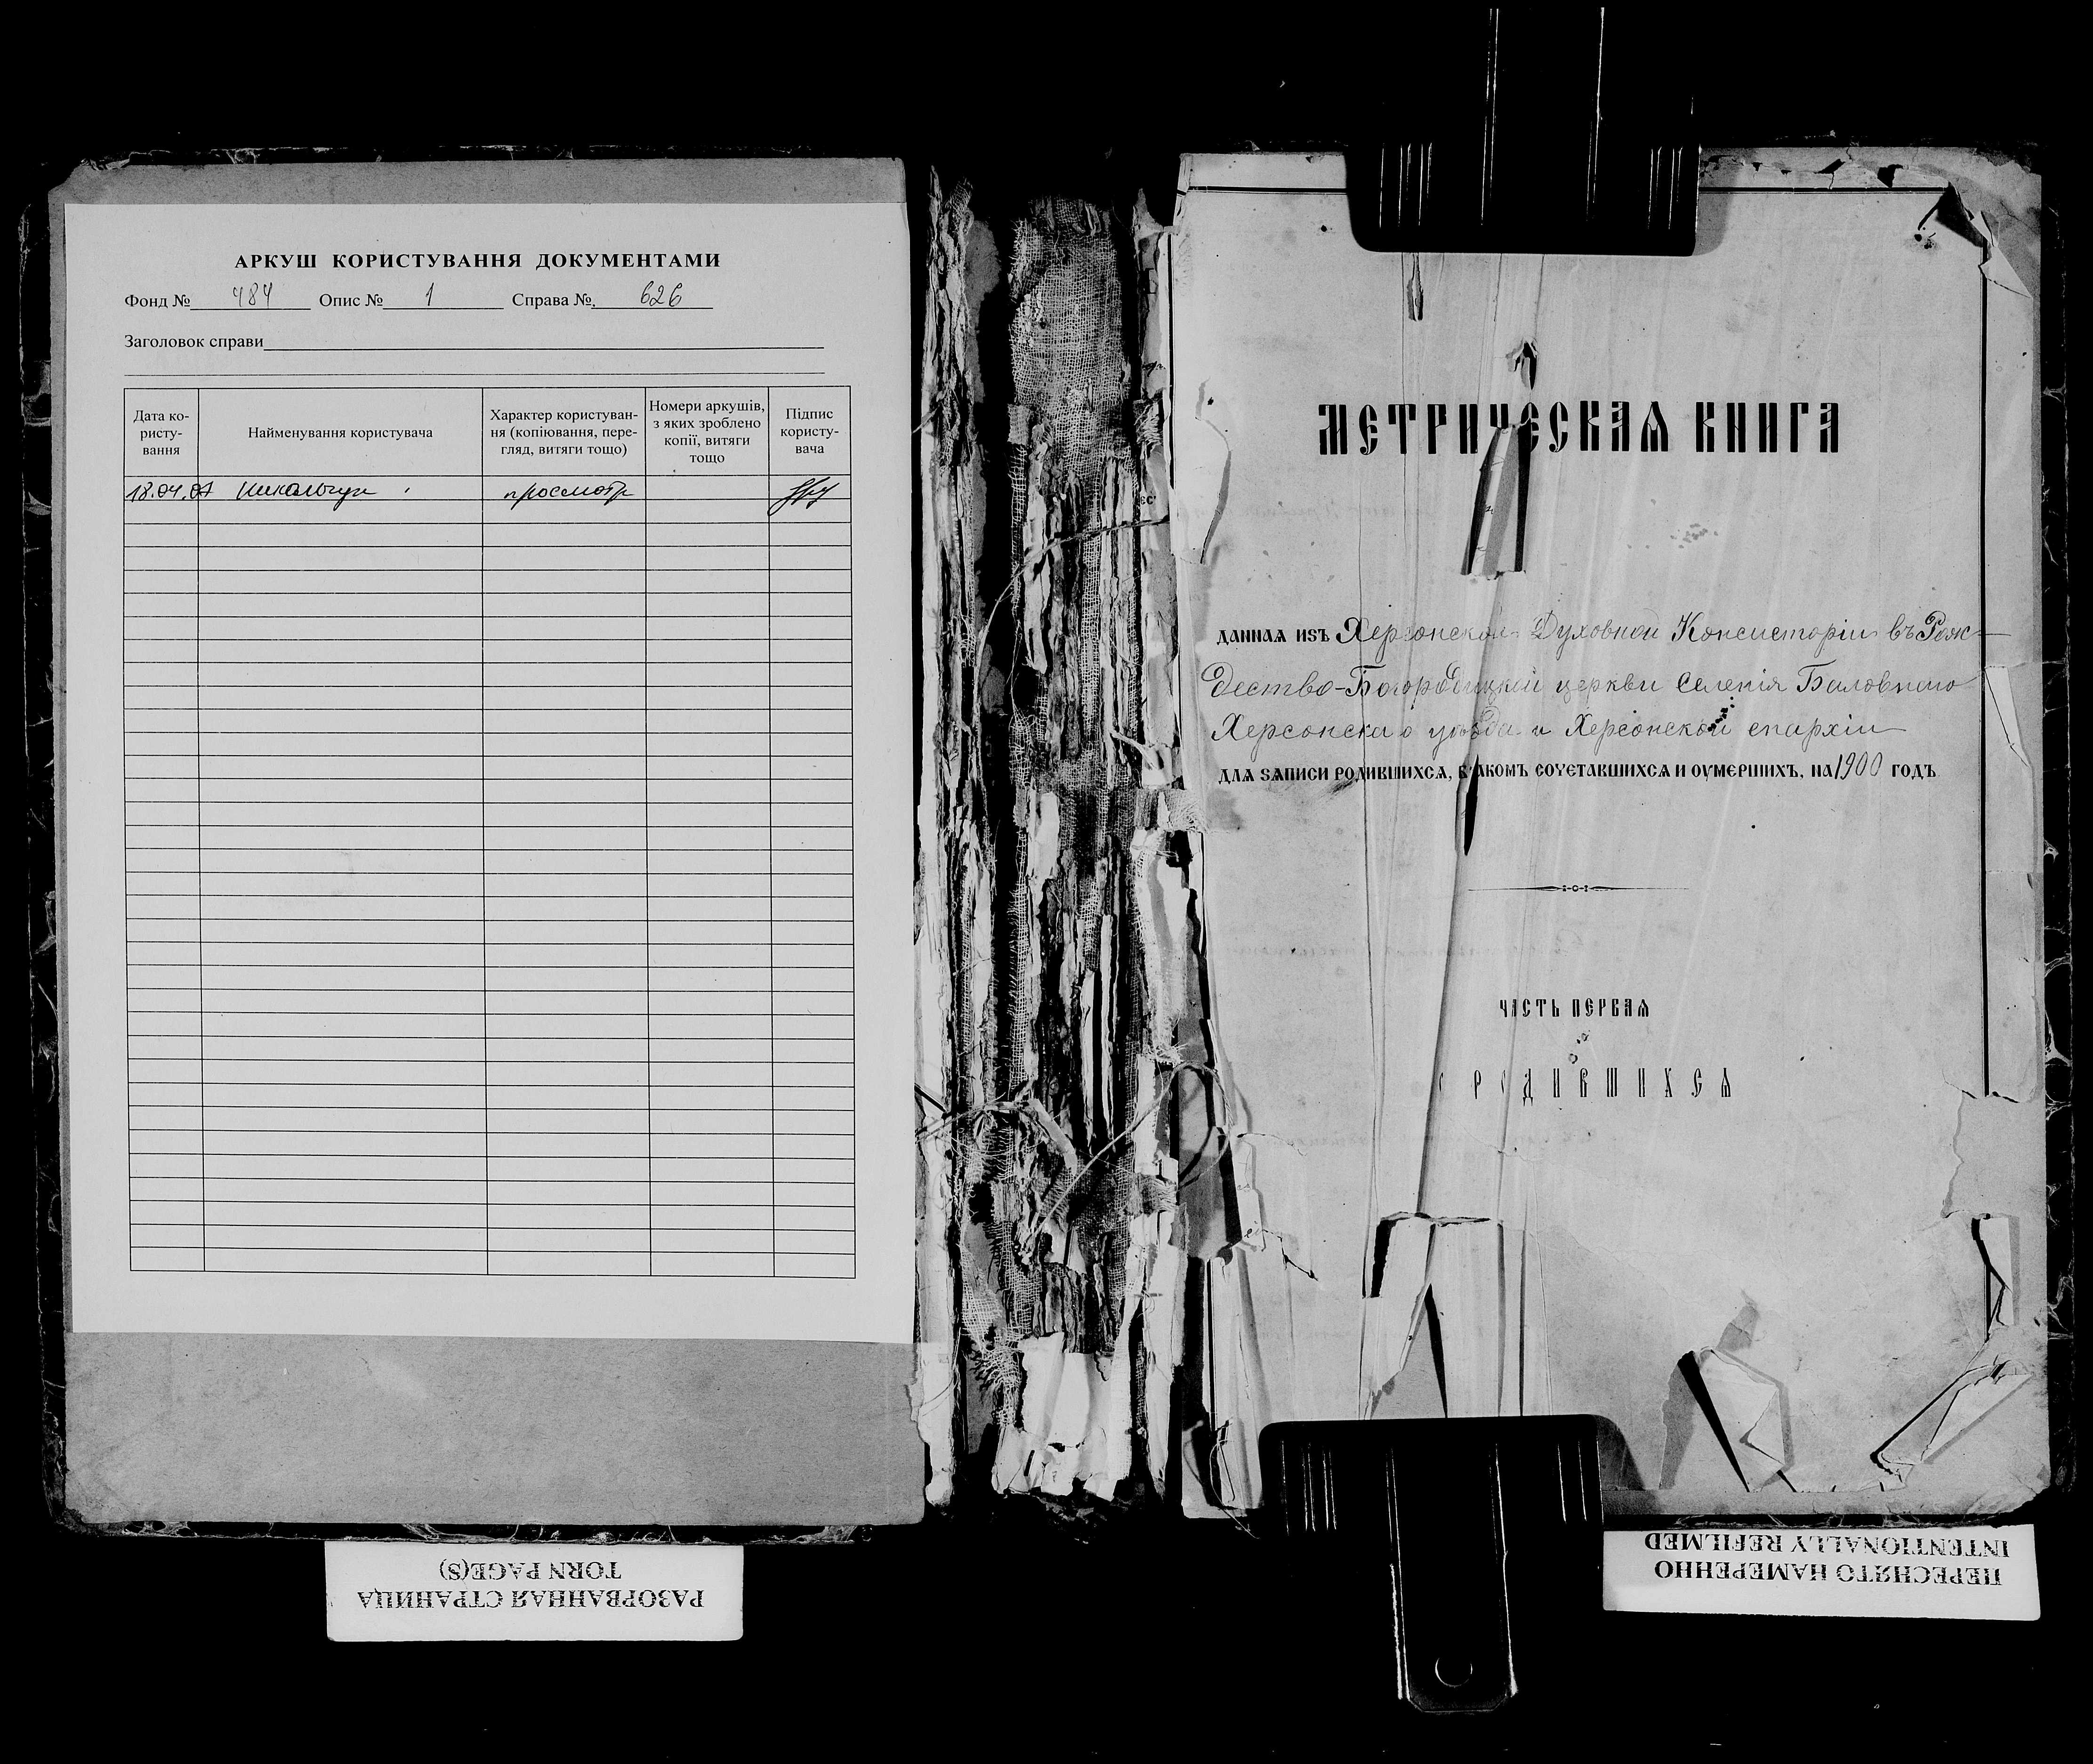 АРКУШ КОРИСТУВАННЯ ДОКУМЕНТАМИ
Фонд № 484 Опис № 1 Справа №. 626
Заголовок справи
Дата ко-
ристу-
вання
Найменування користувача
Характер користуван-
ня (копіювання, пере-
гляд, витяги тощо)
Номери аркушів,
з яких зроблено
копії, витяги
тощо
Підпис
користу-
вача
18.04.07 просмотр
РАЗОРВАННАЯ СТРАНИЦА
TORN PAGE(S)
МЕТРИЧЕСКАѦ КНИГА
ДАННАѦ ИЗЪ Херсонской Духовной Консисторіи въ Рож-
дество-Богородицкой церкви селенія Баловнаго
Херсонскаго уѣзда и Херсонской епархіи
ДЛѦ ЗАПИСИ РОДИВШИХСѦ, БРАКОМЪ СОЧЕТАВШИХСѦ И ОУМЕРШИХЪ, НА 1900 ГОДЪ
ЧАСТЬ ПЕРВАѦ
РОДИВШИХСѦ
ПЕРЕСНЯТО НАМЕРЕННО
INTENTIONALLY REFILMED